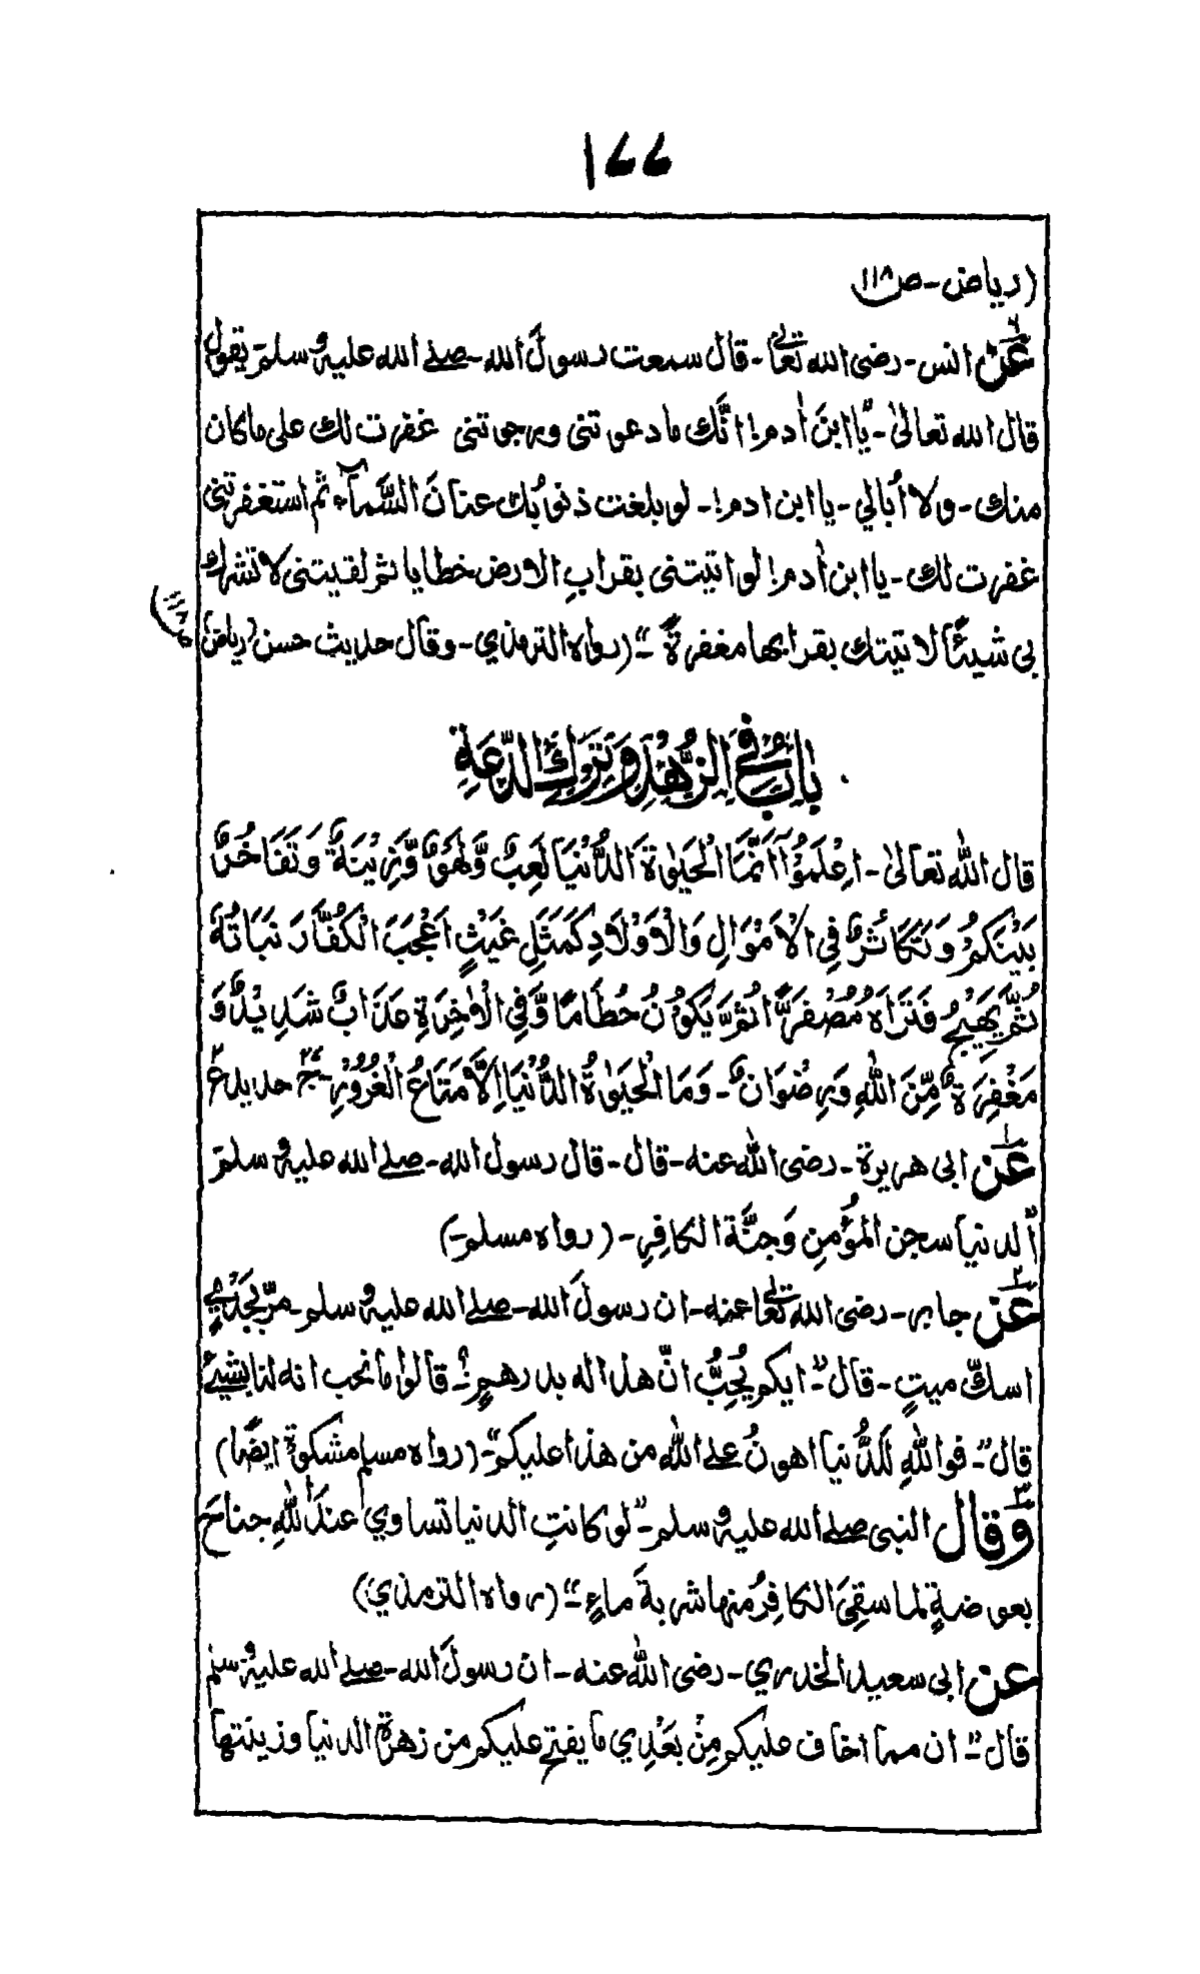 ۱۷۷
(ریاض - ص۱۱۸)
عن انس - رضی الله تعالیٰ - قال سمعت رسولَ الله - صلے الله علیہ وسلم یقول
قال الله تعالیٰ - یٰا ابنَ اٰدم! انَّك ما دعوتنی ورجوتنی غفرت لك علی ما کان
منك - ولا اُبالي - یا ابن ادم! - لو بلغت ذنوبُك عنانَ السَّمآء ثم استغفرتنی
غفرت لك - یا ابن اٰدم! لو اتیتنی بقرابِ الارض خطایا ثم لقیتنی لا تشرك
بی شیئًا لاتیتك بقرابها مغفرةً - (رواه الترمذي - وقال حدیث حسن (ریاض ص۱۱۸)
بابٌ فِی الزُّهْدِ وَتَرْكِ الدَّعَةِ
قال الله تعالیٰ - اِعْلَمُوْآ اَنَّمَا الْحَیٰوةَ الدُّنْیَا لَعِبٌ وَّلَهْوٌ وَّزِیْنَةٌ وَتَفَاخُرٌ
بَیْنَکُمْ وَتَکَاثُرٌ فِی الْاَمْوَالِ وَالْاَوْلَادِ کَمَثَلِ غَیْثٍ اَعْجَبَ الْکُفَّارَ نَبَاتُهٗ
ثُمَّ یَهِیْجُ فَتَرَاهُ مُصْفَرًّا ثُمَّ یَکُوْنُ حُطَامًا وَّفِی الْاٰخِرَةِ عَذَابٌ شَدِیْدٌ وَّ
مَغْفِرَةٌ مِّنَ اللهِ وَرِضْوَانٌ - وَمَا الْحَیٰوةُ الدُّنْیَا اِلَّا مَتَاعُ الْغُرُوْرِ - حدید ع
عن ابی هریرة - رضی الله عنه - قال - قال رسول الله - صلے الله علیہ وسلم
اَلدنیا سجن المؤمنِ وَجنَّة الکافِرِ - (رواه مسلم -)
عن جابر - رضی الله تعالیٰ عنه - ان رسولَ الله - صلے الله علیہ وسلم - مرّ بجَدْيٍ
اسكّ میتٍ - قال - ایکم یُحِبُّ انّ هذا له بدرهمٍ؟ - قالوا ما نحب انه لنا بشيءٍ
قال - فوالله لَلدُّنیا اهونُ علے الله من هذا علیکم - (رواه مسلم مشکوة ایضًا)
وقال النبی صلے الله علیہ وسلم - لو کانتِ الدنیا تساوي عندَ اللهِ جناحَ
بعوضةٍ لما سقِیَ الکافِرُ منها شربةَ ماءٍ - (رواه الترمذي)
عن ابی سعید الخدري - رضی الله عنه - ان رسولَ الله - صلے الله علیہ وسلم
قال - ان مما اخاف علیکم مِنْ بَعْدِي ما یفتح علیکم من زهرة الدنیا وزینتها